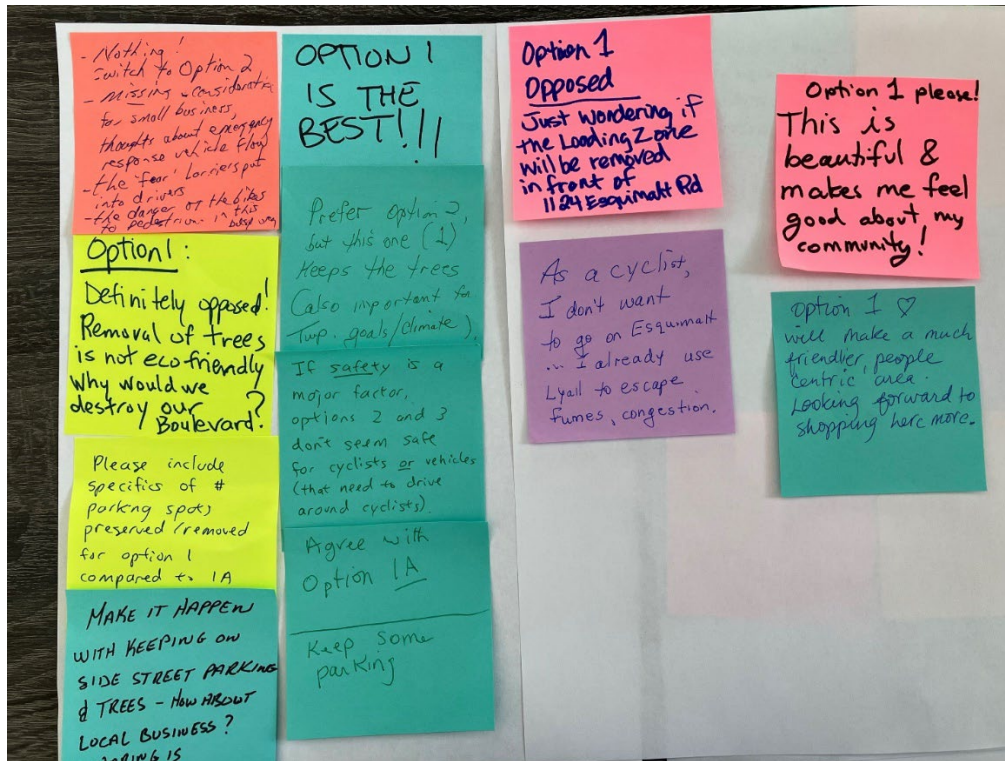 - Nothing!
switch to Option 2
- missing consideration
for small business,
thoughts about emergency
response vehicle flow
- the 'fear' barriers put
into drivers
- the danger of the bikes
to pedestrians in this
busy
Option 1:
Definitely opposed!
Removal of trees
is not eco friendly
Why would we
destroy our
Boulevard?
Please include
specifics of #
parking spots
preserved/removed
for option 1
compared to 1A
MAKE IT HAPPEN
WITH KEEPING ON
SIDE STREET PARKING
& TREES - HOW ABOUT
LOCAL BUSINESS?
IS
OPTION 1
IS THE
BEST!!!
Prefer Option 2,
but this one (1)
Keeps the trees
(also important for
Twp. goals/climate)
If safety is a
major factor,
options 2 and 3
don't seem safe
for cyclists or vehicles
(that need to drive
around cyclists).
Agree with
Option 1A
Keep some
parking
Option 1
Opposed
Just wondering if
the Loading Zone
will be removed
in front of
1124 Esquimalt Rd
As a cyclist,
I don't want
to go on Esquimalt
... I already use
Lyall to escape
fumes, congestion.
Option 1 please!
This is
beautiful &
makes me feel
good about my
community!
Option 1 ♡
will make a much
friendlier, people
centric area.
Looking forward to
shopping here more.